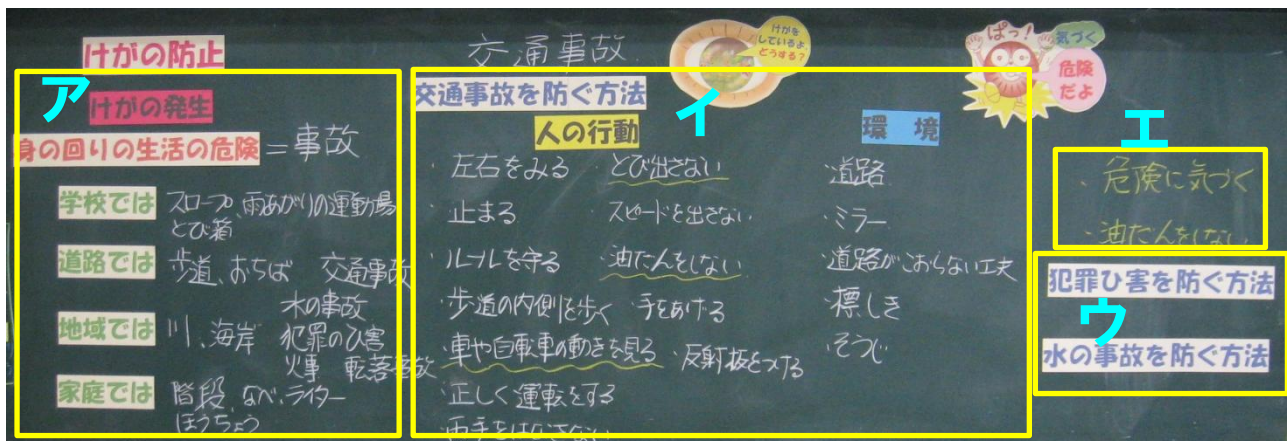 けがの防止
ア
けがの発生
身の回りの生活の危険=事故
学校では スロープ、雨あがりの運動場
とび箱
道路では 歩道、おちば 交通事故
地域では 川、海岸 水の事故
犯罪のひ害
火事 転落事故
家庭では 階段、なべ、ライター
ほうちょう
交通事故
けがを
しているよ、
どうする?
イ
交通事故を防ぐ方法
人の行動
・左右をみる とび出さない
・止まる スピードを出さない
・ルールを守る 油だんをしない
・歩道の内側を歩く 手をあげる
・車や自転車の動きを見る ・反射板をつける
・正しく運転をする
・両手をはなさない
環境
・道路
・ミラー
・道路がこおらない工夫
・標しき
・そうじ
ぱっ!
気づく
危険
だよ
エ
・危険に気づく
・油だんをしない
ウ
犯罪ひ害を防ぐ方法
水の事故を防ぐ方法